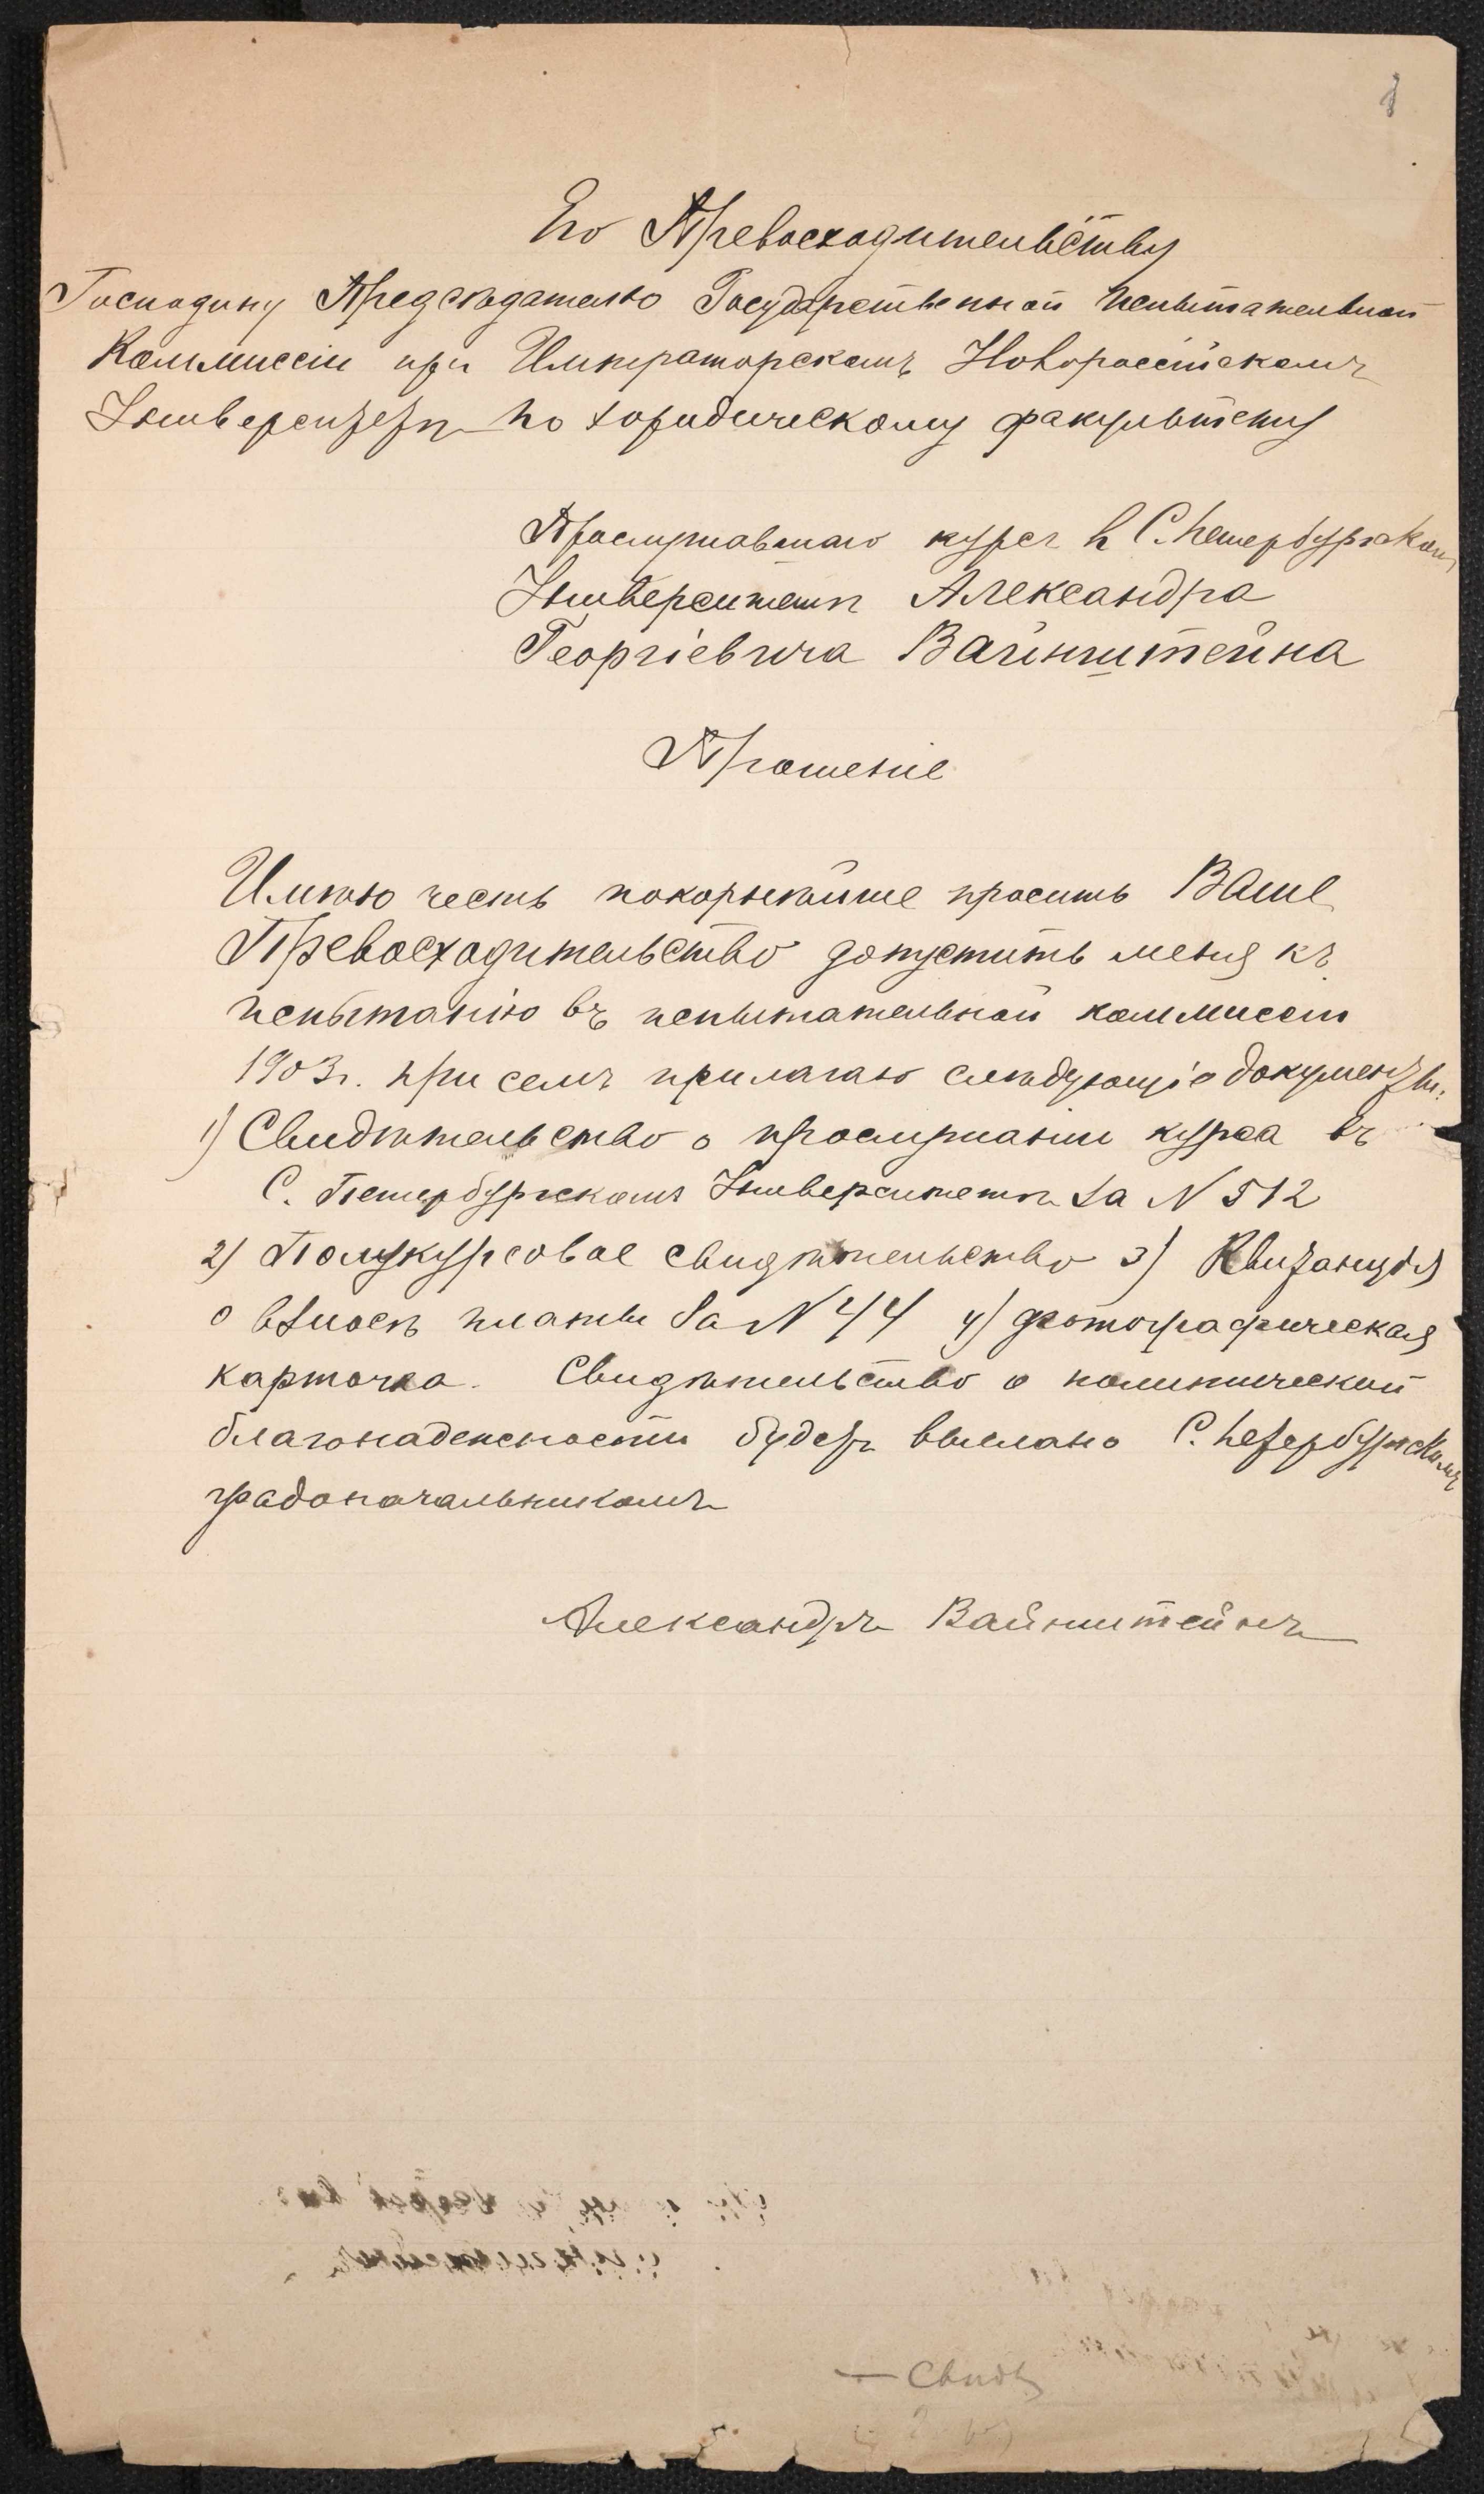 Его Превосходительству
Господину Председателю Государственной Испытательной
Коммиссіи при Императорскомъ Новороссійскомъ
Университетѣ по юридическому факультету
Прослушавшаго курсъ в С.Петербургском
Университетѣ Александра
Георгіевича Вайнштейна
Прошеніе
Имѣю честь покорнѣйше просить Ваше
Превосходительство допустить меня къ
испытанію въ испытательной коммиссіи
1903г. при семъ прилагаю слѣдующіе документы:
1) Свидѣтельство о прослушаніи курса въ
С. Петербургскомъ Университетѣ за N 512
2) Полукурсовое свидѣтельство 3) Квитанція
о взносѣ платы за N 44 4) фотографическая
карточка. Свидѣтельство о политической
благонадежности будетъ выслано С.Петербургскимъ
градоначальникомъ
Александръ Вайнштейнъ
— Свид